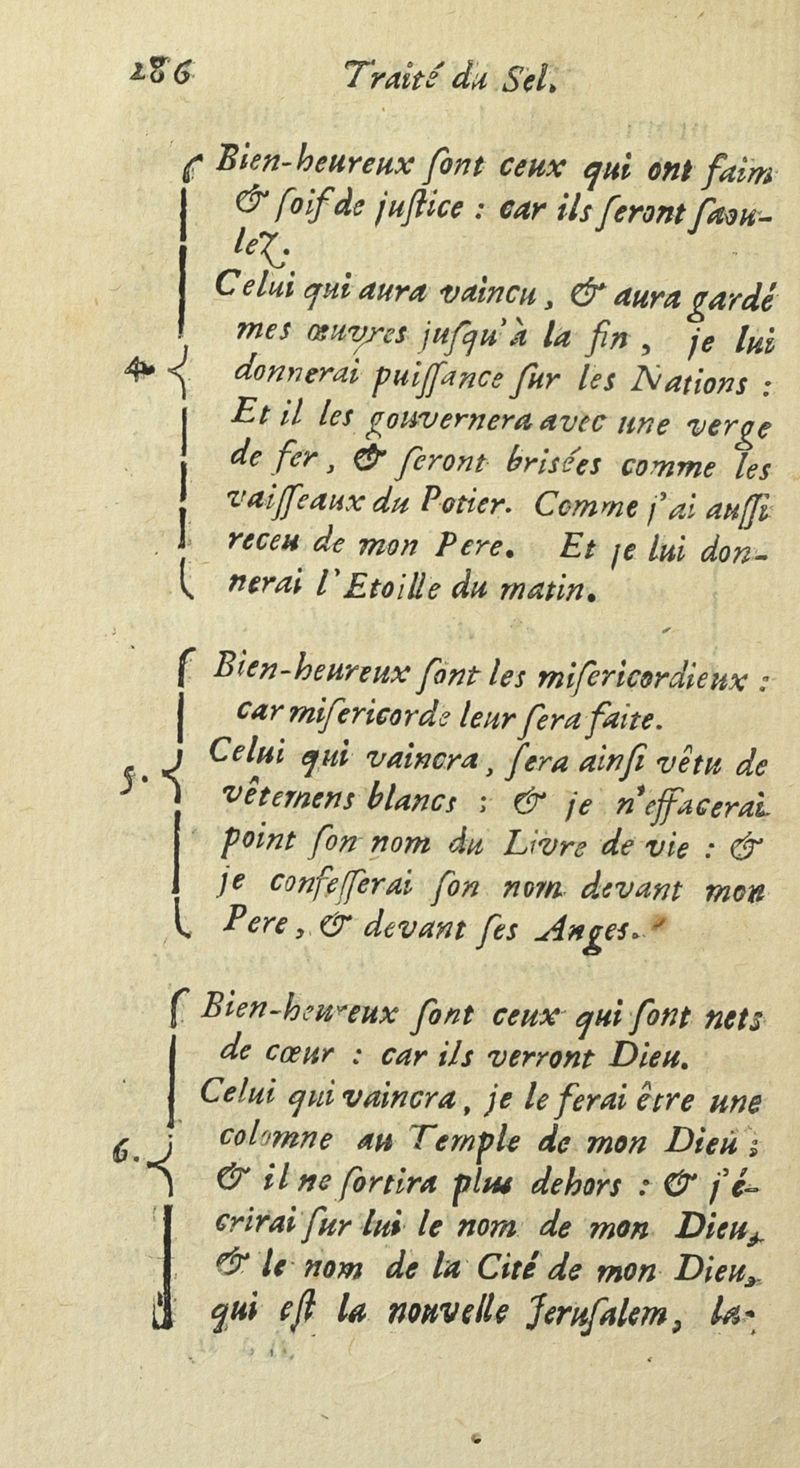 186 Traité du Sel.
Bien-heureux ſont ceux qui ont faim
& ſoif de juſtice : car ils ſeront ſaou-
lez.
Celui qui aura vaincu, & aura gardé
mes œuvres juſqu'à la fin, je lui
4. donnerai puiſſance ſur les Nations :
Et il les gouvernera avec une verge
de fer, & ſeront brisées comme les
vaiſſeaux du Potier. Comme j'ai auſſi
receu de mon Pere. Et je lui don-
nerai l'Etoille du matin.
Bien-heureux ſont les miſericordieux :
car miſericorde leur ſera faite.
5. Celui qui vaincra, ſera ainſi vêtu de
vêtemens blancs ; & je n'effacerai
point ſon nom du Livre de vie : &
je confeſſerai ſon nom devant mon
Pere, & devant ſes Anges.
Bien-heureux ſont ceux qui ſont nets
de cœur : car ils verront Dieu.
Celui qui vaincra, je le ferai être une
6. colomne au Temple de mon Dieu ;
& il ne ſortira plus dehors : & j'é-
crirai ſur lui le nom de mon Dieu,
& le nom de la Cité de mon Dieu,
qui eſt la nouvelle Jeruſalem, la-